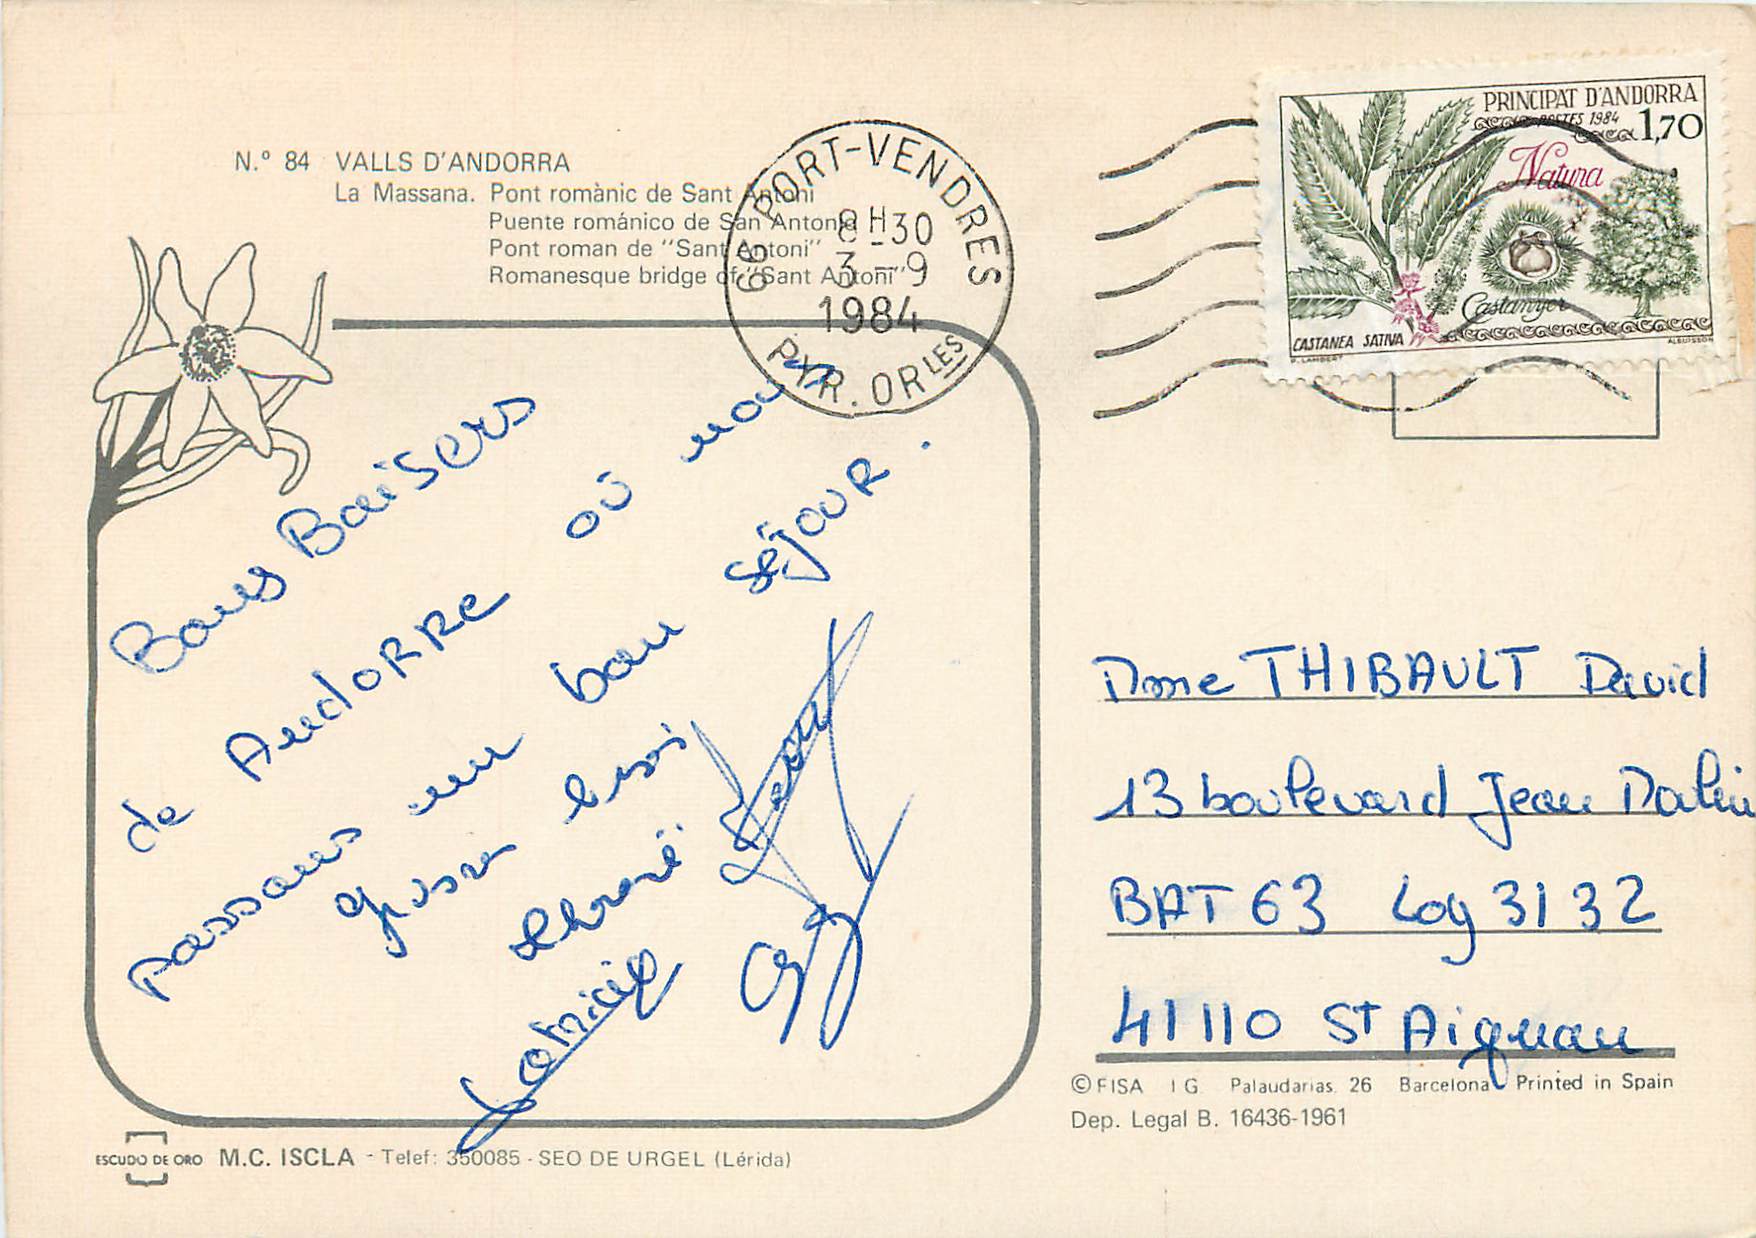 N.º 84 VALLS D'ANDORRA
La Massana. Pont romànic de Sant Antoni
Puente románico de San Antonio
Pont roman de "Sant Antoni"
Romanesque bridge of "Sant Antoni"
66 PORT-VENDRES
8H-30
3-9
1984
PYR. ORLES
PRINCIPAT D'ANDORRA
POSTES 1984
1,70
Natura
Castanyer
CASTANEA SATIVA
P. LAMBERT
ALBUISSON
Bons Baisers
de AndORRe où nous
passons un bon séjour.
Grosses bises
Patricia
Dme THIBAULT David
13 boulevard Jean
BAT 63 Log 3132
41110 St Aignan
© FISA I G Palaudarias. 26 Barcelona Printed in Spain
Dep. Legal B. 16436-1961
ESCUDO DE ORO M.C. ISCLA - Telef: 350085 - SEO DE URGEL (Lérida)